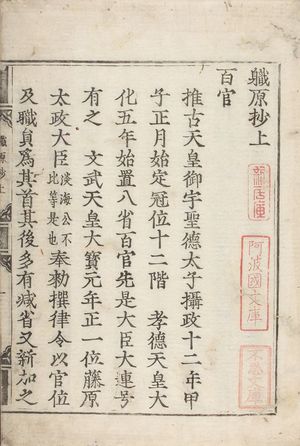 職原抄上
百官
推古天皇御宇聖德太子攝政十二年甲
子正月始定冠位十二階 孝德天皇大
化五年始置八省百官先是大臣大連号
有之 文武天皇大寶元年正一位藤原
太政大臣淡海公不比等是也奉勅撰律令以官位
及職員爲其首其後多有減省又新加之
阿波國文庫
不忍文庫
職原抄上